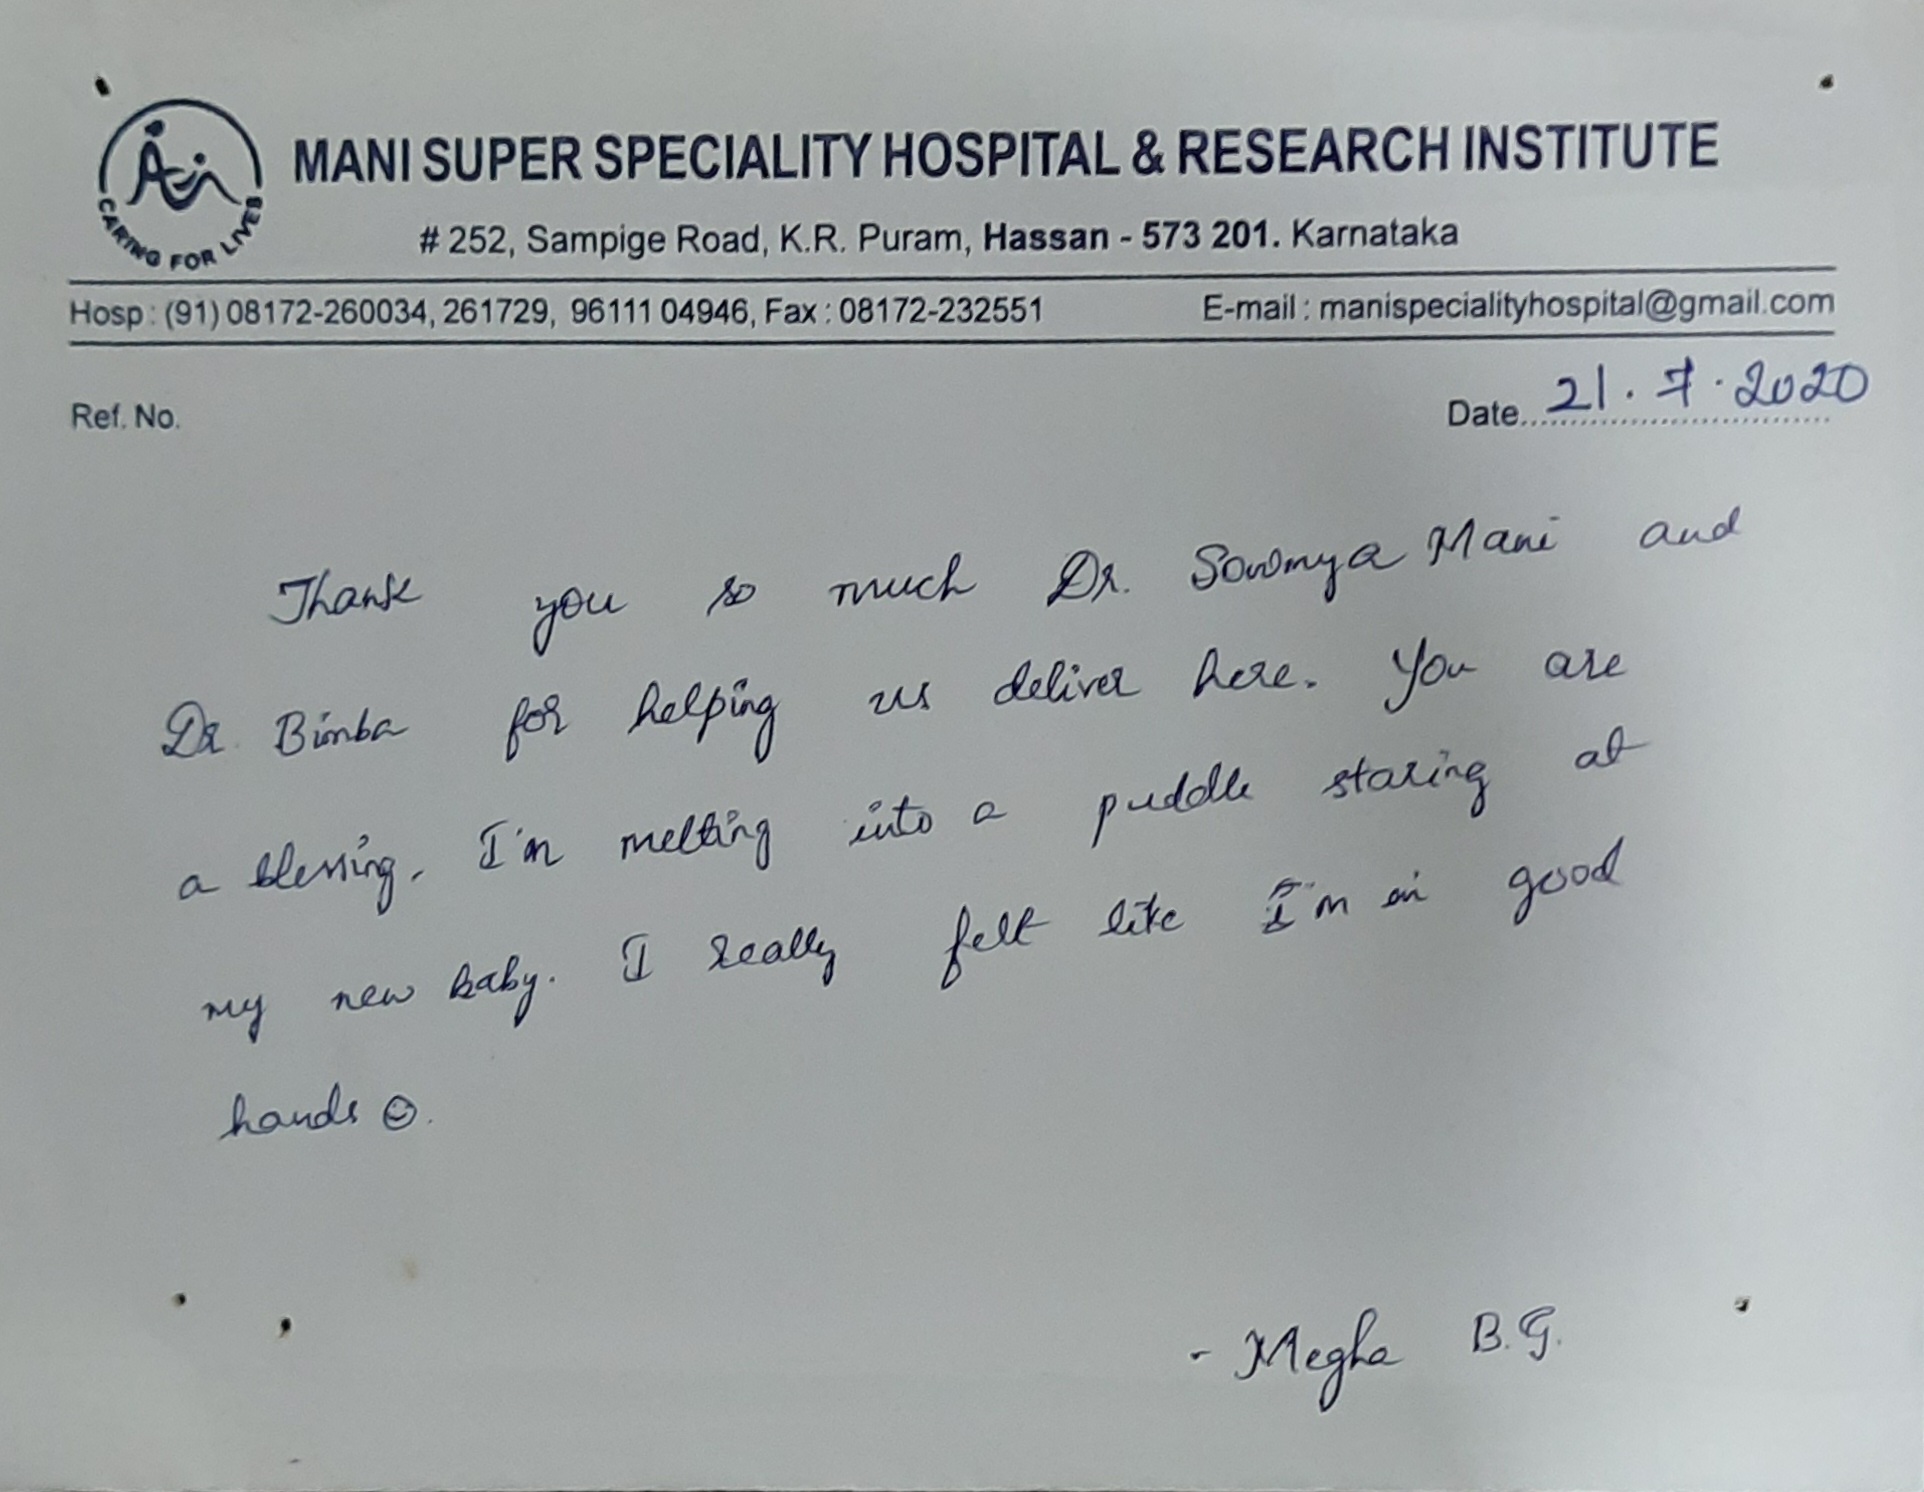 CARING FOR LIVES
MANI SUPER SPECIALITY HOSPITAL & RESEARCH INSTITUTE
# 252, Sampige Road, K.R. Puram, Hassan - 573 201. Karnataka
Hosp : (91) 08172-260034, 261729, 96111 04946, Fax : 08172-232551 E-mail : manispecialityhospital@gmail.com
Ref. No. Date 21.7.2020
Thank you so much Dr. Sowmya Mani and
Dr. Bimba for helping us deliver here. You are
a blessing. I'm melting into a puddle staring at
my new baby. I really felt like I'm in good
hands ☺.
- Megha B.G.